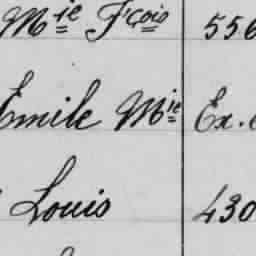 Mie Fçois 556
Emile Mie Ex.
Louis 430